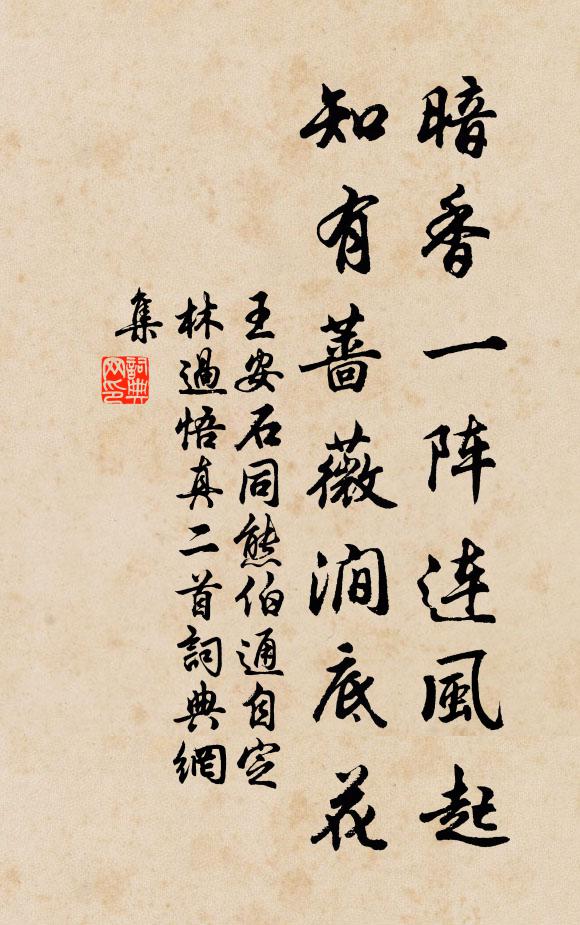 暗香一阵连風起
知有薔薇澗底花
王安石同熊伯通自定
林過悟真二首詞典網
集
詞典
网印